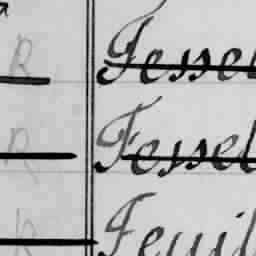 R Fessel
R Fessel
R Feuil